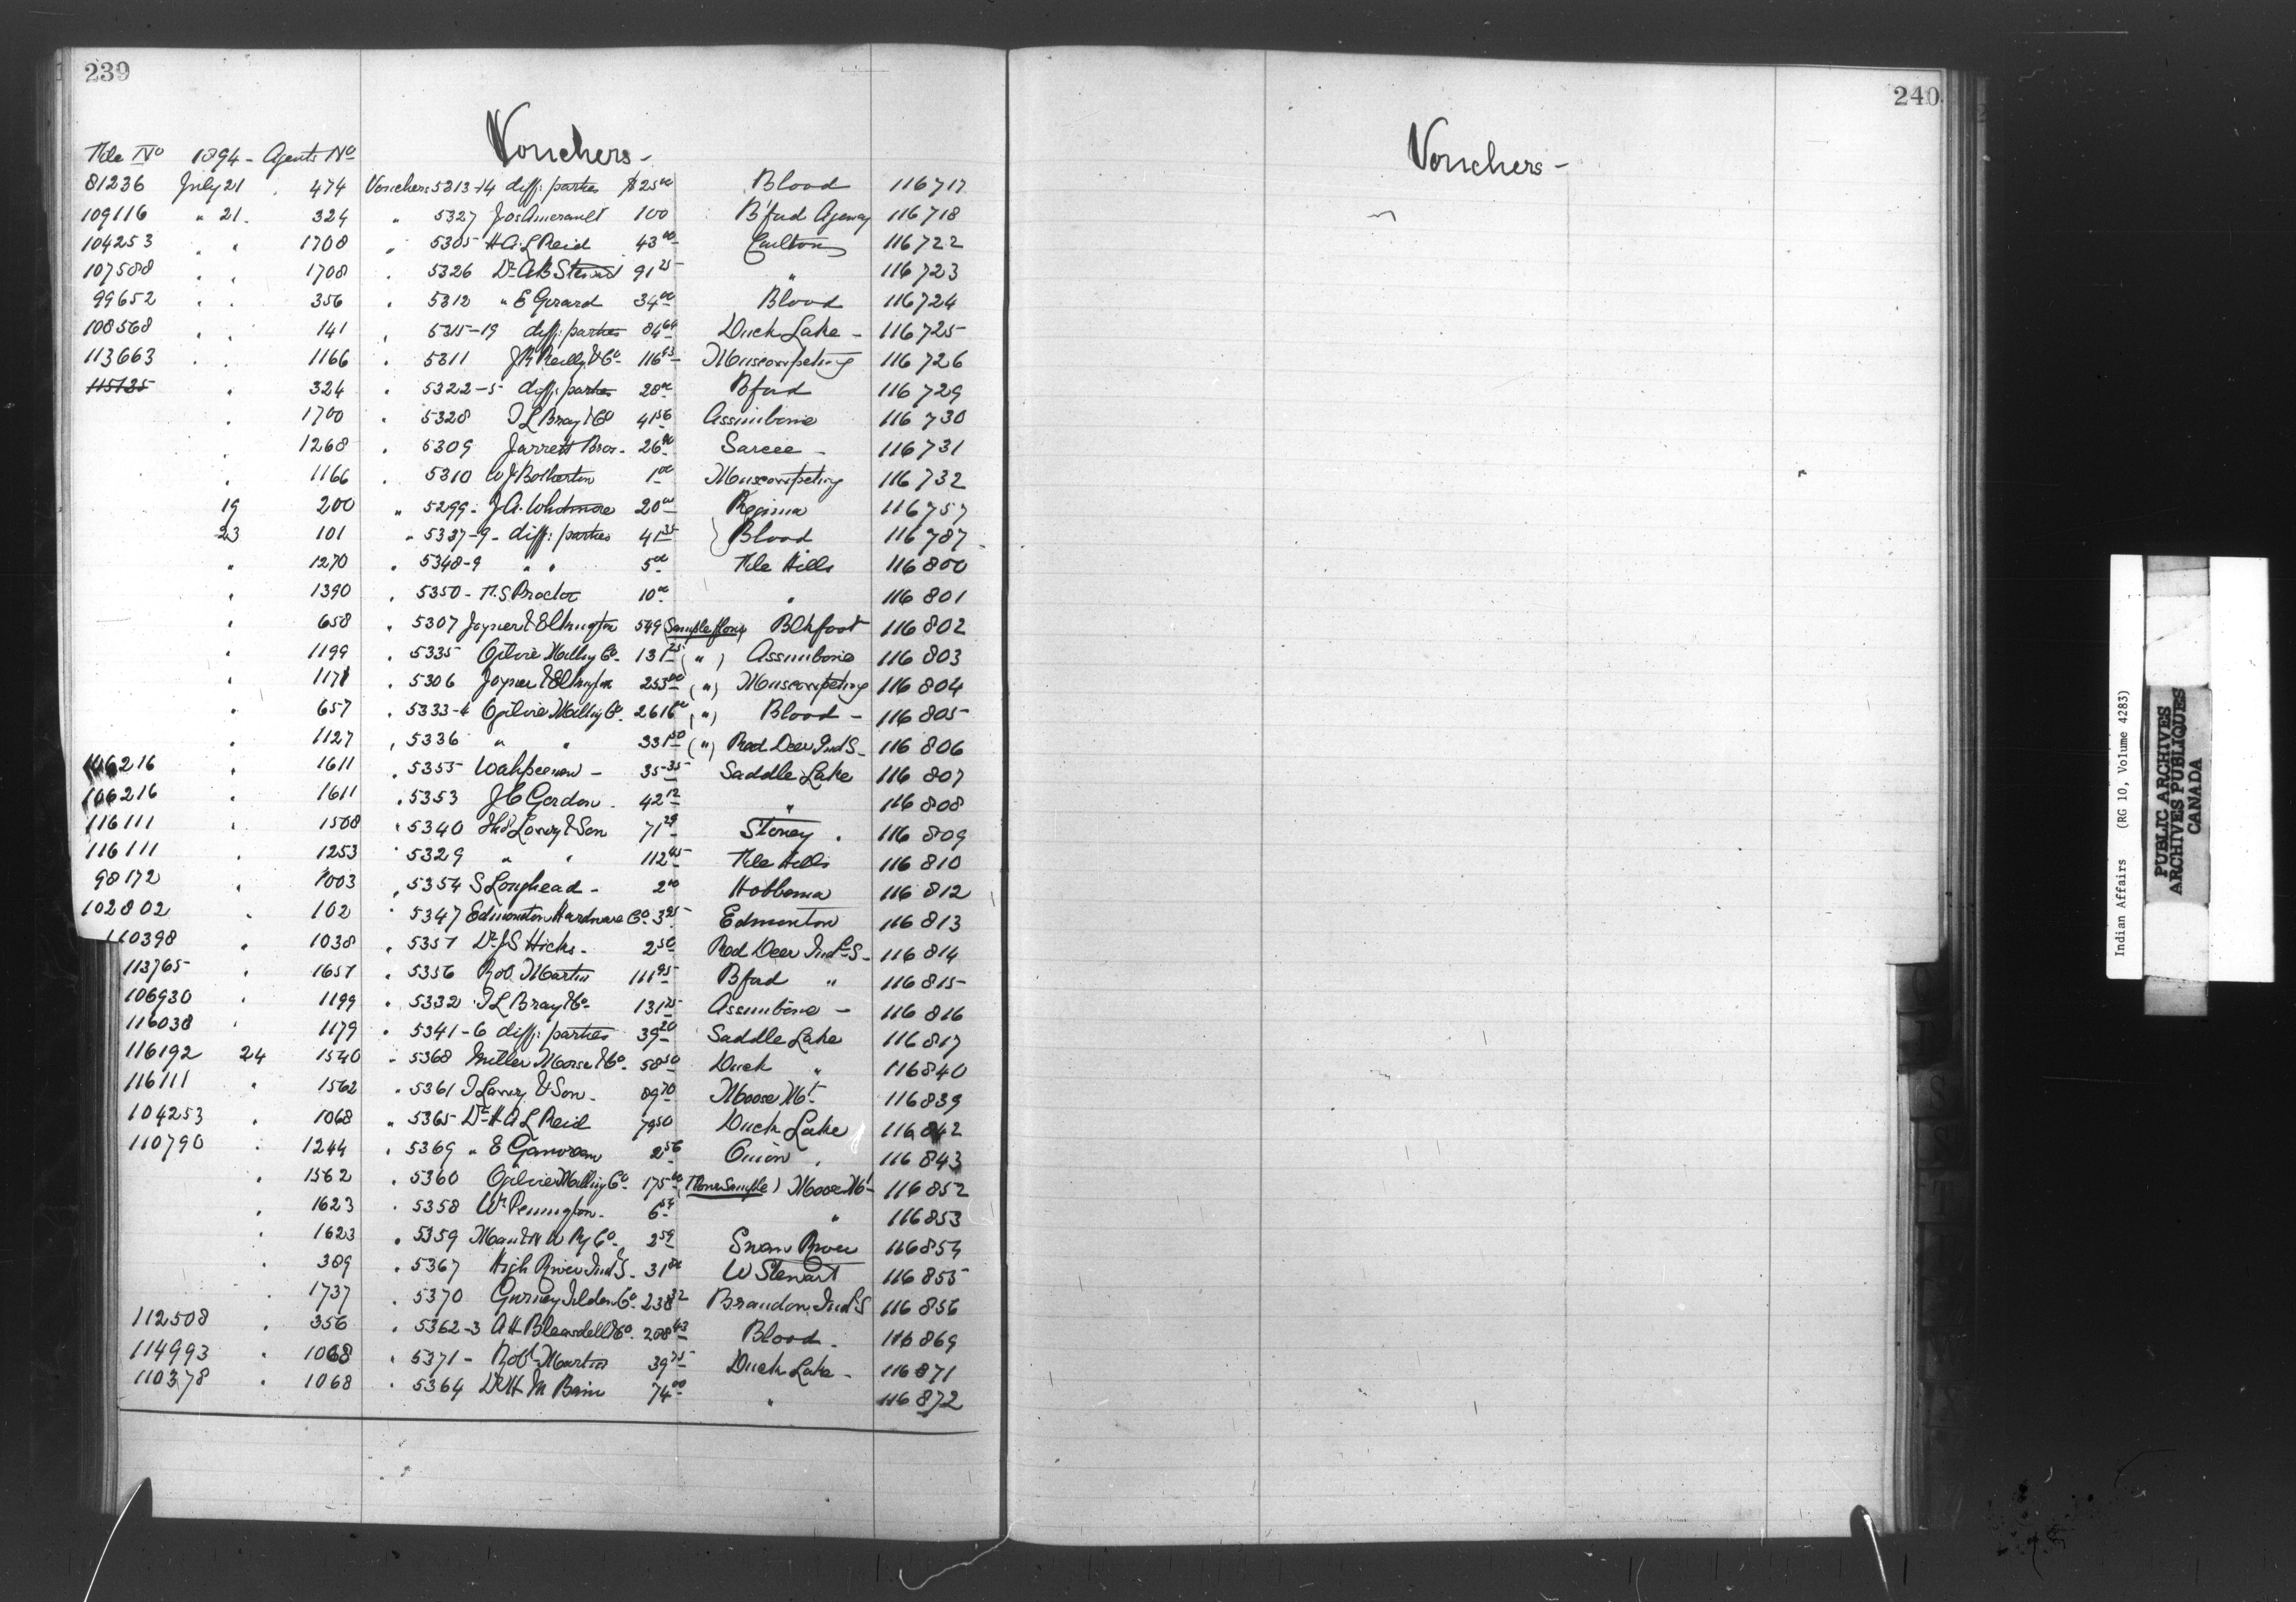 239
Vouchers -
File No 1894 - Agents No
81236 July 21 . 474 Vouchers 5313-14 diff: parties $25 00 Blood 116717
109116 " 21. 324 " 5327 Jos Amerault 100 B'ford Agency 116718
104253 " " 1708 " 5305 H A. L Reid 43 00 Carlton 116722
107588 " " 1708 " 5326 Dr A B Stewart 91 25 " 116723
99652 " " 356 " 5312 " E Girard 34 00 Blood 116724
108568 " " 141 " 5315-19 diff: parties 84 64 Duck Lake - 116725
113663 " " 1166 " 5311 J R Reilly & Co - 116 93 Muscowpetung 116726
115125 " 324 " 5322-5 diff: parties 28 00 Bford 116729
" 1700 " 5328 T L Bray & Co 41 56 Assiniboine 116730
" 1268 " 5309 Jarrett Bros - 26 00 Sarcee - 116731
" 1166 " 5310 W J Bolharton 1 00 Muscowpetung 116732
19 200 " 5299 - J A. Whitmore 20 00 Regina 116757
23 101 " 5337-9 - diff: parties 41 35 Blood 116787
" 1270 " 5348-9 " " 5 00 File Hills 116800
" 1390 " 5350 - N. S Proctor 10 00 " 116801
" 658 " 5307 Joyner & Elkington 549 (Sample flour) Blkfoot 116802
" 1199 " 5335 Ogilvie Milling Co - 131 25 ( " ) Assiniboine 116803
" 1171 " 5306 Joyner & Elkington 253 00 ( " ) Muscowpetung 116804
" 657 " 5333-4 Ogilvie Milling Co . 2616 00 ( " ) Blood - 116805
" 1127 " 5336 " " 331 50 ( " ) Red Deer Ind S - 116806
106216 " 1611 " 5355 Wahpeenew - 35 35 Saddle Lake 116807
106216 " 1611 " 5353 J C Gordon . 42 12 " 116808
116111 " 1508 " 5340 Thos Lawry & Son 71 29 Stoney . 116809
116111 " 1253 " 5329 " " 112 45 File Hills 116810
98172 " 1003 " 5354 S Loughead - 2 00 Hobbema 116812
102802 " 102 " 5347 Edmonton Hardware Co . 3 25 Edmonton 116813
110398 " 1038 " 5357 Dr J S Hicks - 2 50 Red Deer Indl S - 116814
113765 " 1657 " 5356 Rob. Martin 111 95 Bford " 116815
106930 " 1199 " 5332 T L Bray & Co - 131 25 Assiniboine - 116816
116038 " 1179 " 5341-6 diff: parties 39 20 Saddle Lake 116817
116192 24 1540 " 5368 Miller Morse & Co - 58 50 Duck " 116840
116111 " 1562 " 5361 T Lawry & Son - 89 70 Moose Mt - 116839
104253 " 1068 " 5365 Dr H A L Reid 79 50 Duck Lake 116842
110790 " 1244 " 5369 " E 2 56 Onion " 116843
" 1562 " 5360 Ogilvie Milling Co - 175 00 (Flour Sample) Moose Mt - 116852
" 1623 " 5358 Wm Pennington - 6 54 " 116853
" 1623 " 5359 Man & N W Ry Co - 2 59 Swan River 116854
" 389 " 5367 High River Ind S - 31 80 W Stewart 116855
" 1737 " 5370 Gurney Tilden Co - 238 32 Brandon Indl S 116856
112508 " 356 " 5362-3 A H Bleasdell & Co . 208 43 Blood - 116869
114993 " 1068 " 5371 - Robt Martin 39 75 Duck Lake - 116871
110378 " 1068 " 5364 Dr H M Bain 74 00 " 116872
240
Vouchers -
Indian Affairs (RG 10, Volume 4283)
PUBLIC ARCHIVES
ARCHIVES PUBLIQUES
CANADA